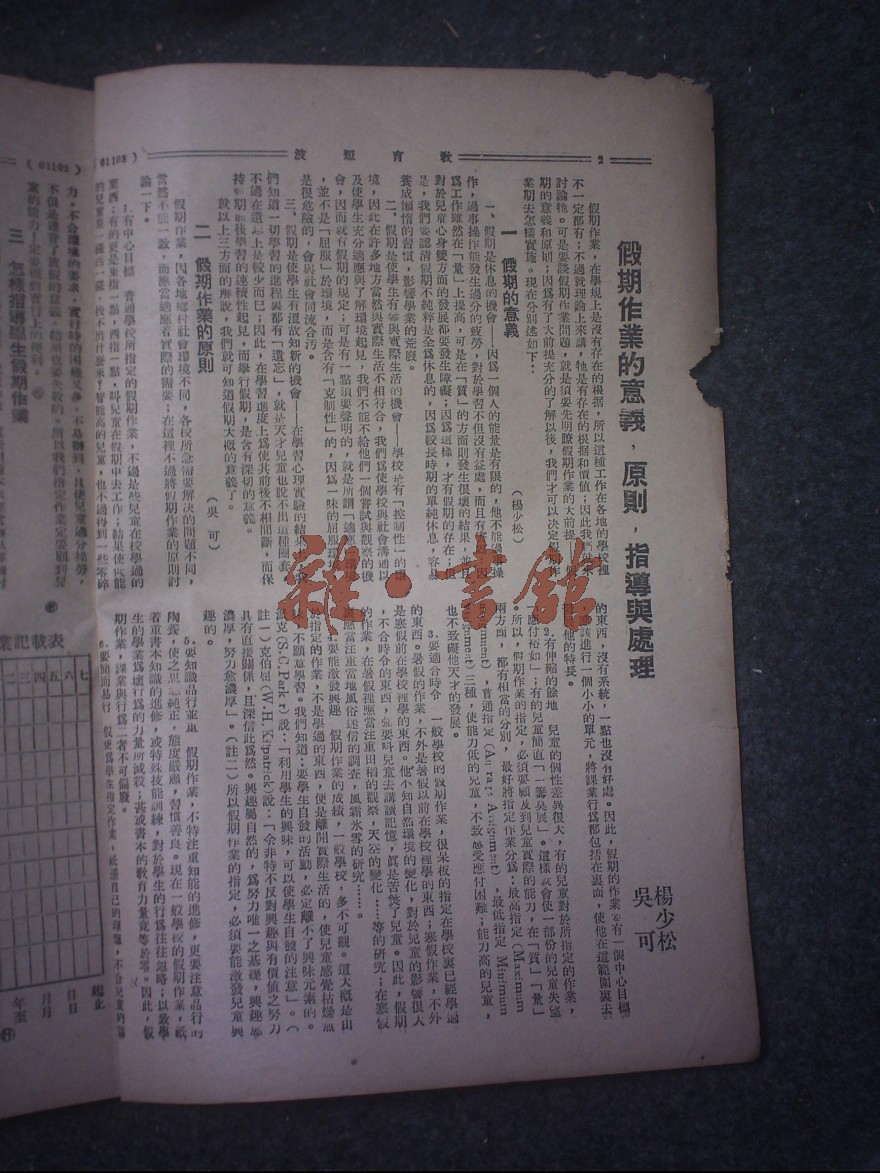 2
教育短波
( 01108 )
假期作業的意義,原則,指導與處理
楊少松
吳 可
假期作業,在學規上是沒有存在的根據,所以這種工作在各地的學校裡
不一定都有;不過就理論上來講,牠是有存在的根據和價值;因此我們
討論牠。可是要談假期作業問題,就是須要先明瞭假期作業的大前提
期的意義和原則;因為有了大前提充分的了解以後,我們才可以決定假期作
業期去怎樣實施。現在分別述如下:
(楊少松)
一 假期的意義
一、假期是休息的機會——因為一個人的能量是有限的,他不能過事操
作,過事操作能發生過分的疲勞,對於學習不但沒有益處,而且有
為工作雖然在「量」上提高,可是在「質」的方面則發生很壞的結果,並且
對於兒童心身雙方面的發展都要發生障礙;因為這樣,才有假期的存在。但
是,我們要認清假期不純粹是全為休息的,因為較長時期的單純休息,容易
養成懶惰的習慣,影響學業的荒廢。
二、假期是使學生有參與實際生活的機會——學校是有「控制性」的環
境,因此在許多地方當然與實際生活不相符合,我們為使學校與社會溝通以
及使學生充分適應與了解環境起見,我們不能不給他們一個嘗試與觀察的機
會,因而就有假期的規定;可是有一點須要聲明的,就是所謂「適應環境」
,並不是「屈服」於環境,而是含有「克制性」的,因為一味的屈服環境
是很危險的,會與社會同流合污。
三、假期是使學生有溫故知新的機會——在學習心理實驗的結果,我
們知道一切學習的進程與都有「遺忘」,就是天才兒童也脫不出這種圈套,
不過在遺忘上是較少而已;因此,在學習進度上為使其前後不相間斷,而保
持假期前後學習的連續性起見,而舉行假期,是含有深切的意義。
就以上三方面的解說,我們就可知道假期大概的意義了。
(吳 可)
二 假期作業的原則
假期作業,因各地鄉村社會環境不同,各校所急需要解決的問題不同,
當然不能一致,而應當適應著實際的需要;在這裡不過將假期作業的原則討
論一下。
1.有中心目標 普通學校所指定的假期作業,不過是些兒童在校學過的
東西;有的更是東指一點,西指一點,叫兒童在假期中去工作;結果使低能
的東西,沒有系統,一點也沒有好處。因此,假期的作業要有一個中心目標
該進行一個小小的單元,將課業行為都包括在裏面,使他在這範圍裏去
他的特長。
2.有伸縮的餘地 兒童的個性差異很大,有的兒童對於所指定的作業,
「應付裕如」;有的兒童簡直「一籌莫展」。這樣就會使一部份的兒童失望
。所以,假期作業的指定,必須要顧及到兒童實際的能力,在「質」「量」
兩方面,都有相當的分別,最好將指定作業分為:最高指定(Maximum
),普通指定( Assignment),最低指定( Minimum
)三種,使能力低的兒童,不致感受應付困難;能力高的兒童,
也不致礙他天才的發展。
3.要適合時令 一般學校的假期作業,很呆板的指定在學校裏已經學過
的東西。暑假的作業,不外是暑假以前在學校裡學的東西;寒假作業,不外
是寒假前在學校裡學的東西。他不知自然環境的變化,對於兒童的影響很大
,不合時令的東西,強要叫兒童去講讀記憶,真是苦煞了兒童。因此,假期
的作業,在暑假裡應當注重田稻的觀察,天空的變化……等的研究;在寒假
裡應當注重當地風俗迷信的調查,風霜氷雪的研究……。
4.要能激發興趣 假期作業的成績,一般學校,多不可觀。這大概是由
於指定的作業,不是學過的東西,便是離開實際生活的,使兒童感覺枯燥無
味,不願意學習。我們知道:要學生自發的活動,必定離不了興味元素的。
派克(S.C. Parker)說:「利用學生的興味,可以使學生自發的注意」。(
註一)克伯屈(W.H. Kipatrick)說:「余非特不反對興趣與有價值之努力
具有直接關係,且深信此為然。興趣屬自然的,為努力唯一之基礎,興趣愈
濃厚,努力愈濃厚」。(註二)所以假期作業的指定,必須要能激發兒童興
趣的。
5.要知識品行並重 假期作業,不特注重知能的進修,更要注意品行的
陶養,使之思想純正,態度嚴肅,習慣善良。現在一般學校的假期作業,祇
着重書本知識的進修,或特殊技能訓練,對於學生的行為往往忽略;以致學
生的學業給壞行為的力量所減殺;甚或書本的教育力量竟等於零。因此,假
期作業,課業與行為二者不可偏廢。
6.要簡而易行
( 01109 )
三 怎樣指導學生假期作業
業記載表
七
六
五
四
三
二
起止
日
日
月
月
年
至
雜·書館